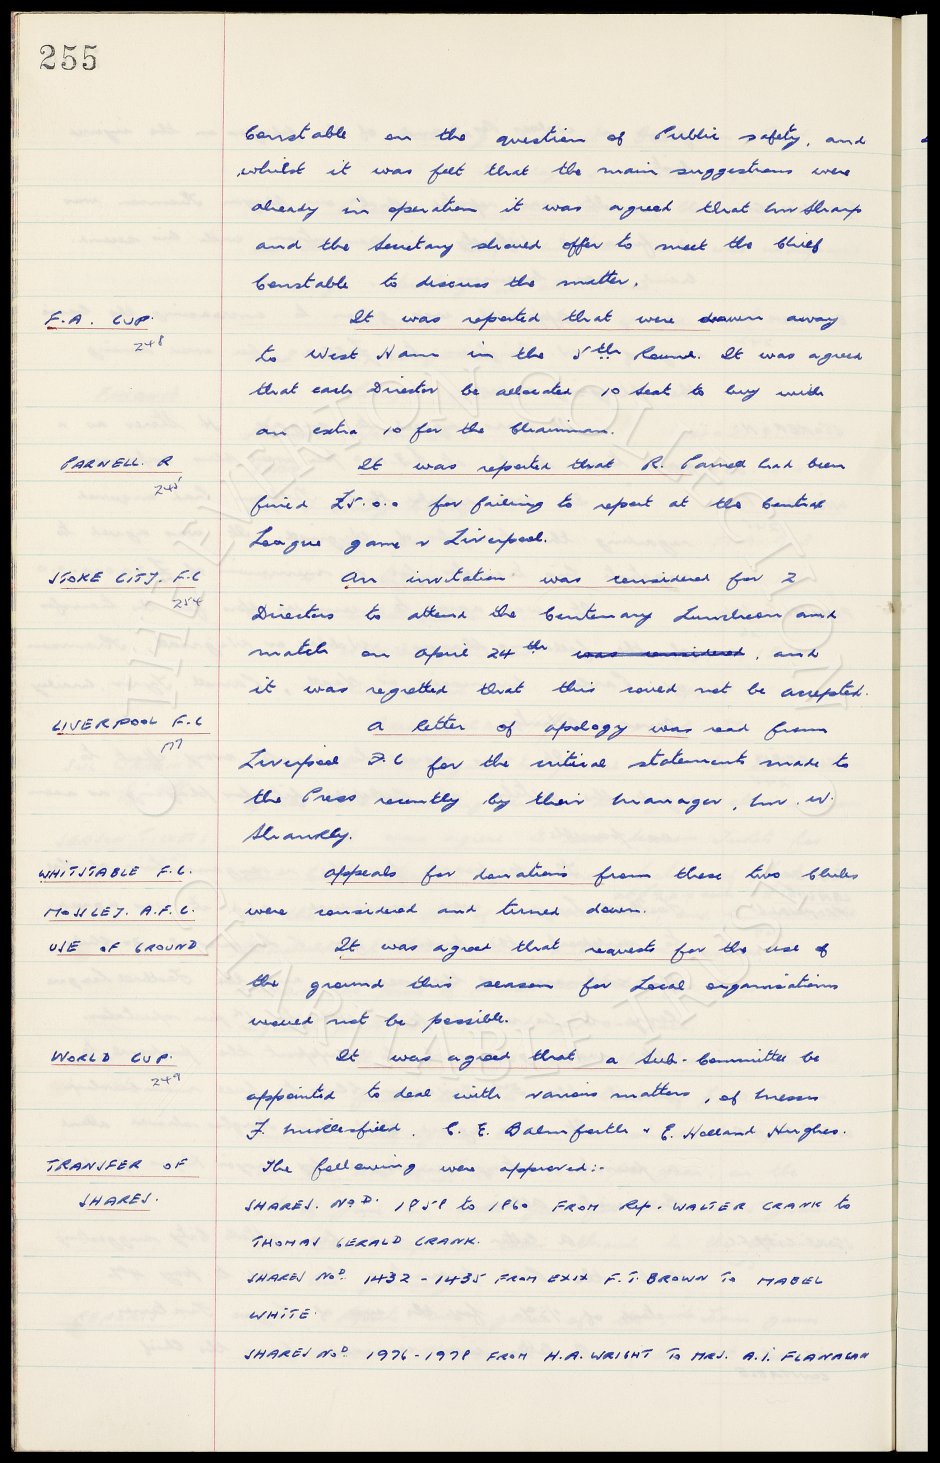 255
Constable on the question of Public safety, and
whilst it was felt that the main suggestions were
already in operation it was agreed that Mr Sharp
and the Secretary should offer to meet the Chief
Constable to discuss the matter.
F.A. CUP. It was reported that were drawn away
248
to West Ham in the 5th Round. It was agreed
that each Director be allocated 10 seat to buy with
an extra 10 for the Chairman.
PARNELL. R It was reported that R. Parnell had been
245
fined £5.0.0 for failing to report at the Central
League game v Liverpool.
STOKE CITY. F.C An invitation was considered for 2
254
Directors to attend the Centenary Luncheon and
match on April 24th was considered, and
it was regretted that this could not be accepted.
LIVERPOOL F.C A letter of apology was read from
Liverpool F.C for the critical statements made to
the Press recently by their Manager, Mr. W.
Shankly.
WHITSTABLE F.C. Appeals for donations from these two Clubs
MOSSLEY. A.F.C. were considered and turned down.
USE OF GROUND It was agreed that requests for the use of
the ground this season for Local organisations
would not be possible.
WORLD CUP. It was agreed that a Sub-Committee be
249
appointed to deal with various matters, of Messrs
F. Micklesfield, C. E. Balmforth & E. Holland Hughes.
TRANSFER OF The following were approved:-
SHARES. SHARES. NoD. 1858 to 1860 FROM Rep. WALTER CRANK to
THOMAS GERALD CRANK.
SHARES NoD. 1432 - 1435 FROM EXIX F.T. BROWN TO MABEL
WHITE.
SHARES NoD. 1976-1978 FROM H.A. WRIGHT TO MRS. A.I. FLANAGAN